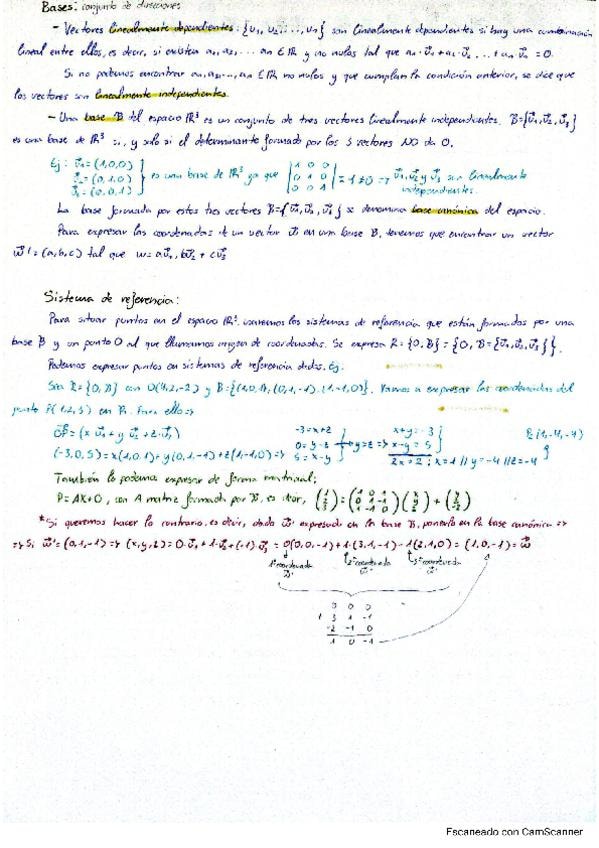 Bases: conjunto de direcciones
- Vectores linealmente dependientes: {v₁, v₂, ..., vₙ} son linealmente dependientes si hay una combinación
lineal entre ellos, es decir, si existen a₁, a₂, ... aₙ ∈ ℝ y no nulos tal que a₁·v⃗₁ + a₂·v⃗₂ ... + aₙ·v⃗ₙ = 0.
Si no podemos encontrar a₁, a₂, ..., aₙ ∈ ℝ no nulos y que cumplan la condición anterior, se dice que
los vectores son linealmente independientes.
- Una base B del espacio ℝ³ es un conjunto de tres vectores linealmente independientes. B={v⃗₁, v⃗₂, v⃗₃}
es una base de ℝ³ si, y solo si el determinante formado por los 3 vectores NO da 0.
Ej: v⃗₁ = (1,0,0)
v⃗₂ = (0,1,0) } es una base de ℝ³ ya que |1 0 0; 0 1 0; 0 0 1| = 1 ≠ 0 => v⃗₁, v⃗₂ y v⃗₃ son linealmente
v⃗₃ = (0,0,1) independientes.
La base formada por estos tres vectores B={v⃗₁, v⃗₂, v⃗₃} se denomina base canónica del espacio.
Para expresar las coordenadas de un vector w⃗ en una base B, tenemos que encontrar un vector
w⃗' = (a,b,c) tal que w = av⃗₁, bv⃗₂ + cv⃗₃
Sistema de referencia:
Para situar puntos en el espacio ℝ³ usaremos los sistemas de referencia que están formados por una
base B y un punto O al que llamaremos origen de coordenadas. Se expresa R = {O, B} = {O, B={v⃗₁, v⃗₂, v⃗₃}}.
Podemos expresar puntos en sistemas de referencia dados. Ej:
Sea R = {O, B} con O(4,2,-2) y B={(1,0,1), (0,1,-1), (1,-1,0)}. Vamos a expresar las coordenadas del
punto P(1,2,3) en R. Para ello =>
OP⃗ = (x v⃗₁ + y v⃗₂ + z·v⃗₃)
(-3,0,5) = x(1,0,1) + y(0,1,-1) + z(1,-1,0) =>
-3 = x+z
0 = y-z => y = z =>
5 = x-y
x+y = -3
x-y = 5
2x = 2; x = 1 // y = -4 // z = -4
(1,-4,-4)
También lo podemos expresar de forma matricial:
P = AX + O, con A matriz formada por B, es decir, (1 2 3) = (1 0 1; 0 1 -1; 1 -1 0)(x y z) + (4 2 -2)
*Si queremos hacer lo contrario, es decir, dado w⃗' expresado en la base B, ponerlo en la base canónica =>
=> Si w⃗' = (0,1,-1) => (x,y,z) = 0·v⃗₁ + 1·v⃗₂ + (-1)·v⃗₃ = 0(0,0,-1) + 1·(3,1,-1) - 1(2,1,0) = (1,0,-1) = w⃗
1ª coordenada w⃗' 2ª coordenada w⃗' 3ª coordenada w⃗'
0 0 0
3 1 -1
-2 -1 0
1 0 -1
Escaneado con CamScanner